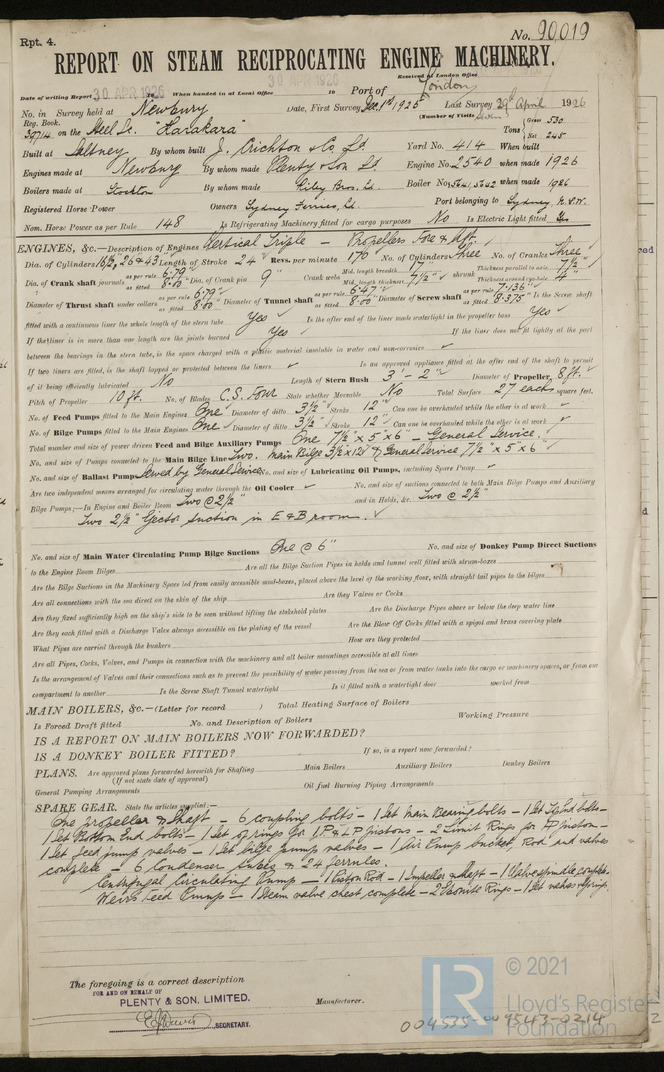 Rpt. 4.
No. 90,019
REPORT ON STEAM RECIPROCATING ENGINE MACHINERY.
Received at London Office
Date of writing Report 30 APR 1926 When handed in at Local Office 30 APR 1926 Port of London
No. in Survey held at Newbury Date, First Survey Dec. 1st 1925 Last Survey 29th April 1926
Reg. Book. (Number of Visits Seven)
on the Steel Sc. "Karakara" Tons Gross 530 Net 245
Built at Saltney By whom built J. Crichton & Co Ld Yard No. 414 When built
Engines made at Newbury By whom made Plenty & Son Ld Engine No. 2540 when made 1926
Boilers made at Stockton By whom made Riley Bros. Ld. Boiler No. when made 1926
Registered Horse Power Owners Sydney Ferries, Ld. Port belonging to Sydney, N.S.W.
Nom. Horse Power as per Rule 148 Is Refrigerating Machinery fitted for cargo purposes No Is Electric Light fitted Yes
ENGINES, &c.—Description of Engines Vertical Triple — Propellers Fore & Aft
Dia. of Cylinders 16½", 26 & 43 Length of Stroke 24" Revs. per minute 170 No. of Cylinders Three No. of Cranks Three
Dia. of Crank shaft journals as per rule 6.79" as fitted 8.00" Dia. of Crank pin 9" Crank webs Mid. length breadth 17" Mid. length thickness 7½" shrunk Thickness parallel to axis 7½" Thickness around eye-hole 4"
Diameter of Thrust shaft under collars as per rule 6.79" as fitted 8.00" Diameter of Tunnel shaft as per rule 6.47" as fitted 8.00" Diameter of Screw shaft as per rule 7.136" as fitted 8.375" Is the Screw shaft
fitted with a continuous liner the whole length of the stern tube Yes Is the after end of the liner made watertight in the propeller boss Yes
If the liner is in more than one length are the joints burned Yes If the liner does not fit tightly at the part
between the bearings in the stern tube, is the space charged with a plastic material insoluble in water and non-corrosive
If two liners are fitted, is the shaft lapped or protected between the liners Is an approved appliance fitted at the after end of the shaft to permit
of it being efficiently lubricated No Length of Stern Bush 3'-2" Diameter of Propeller 8 ft.
Pitch of Propeller 10 ft. No. of Blades C.S. Four State whether Moveable No Total Surface 27 each square feet.
No. of Feed Pumps fitted to the Main Engines One Diameter of ditto 3½" Stroke 12" Can one be overhauled while the other is at work
No. of Bilge Pumps fitted to the Main Engines One Diameter of ditto 3½" Stroke 12" Can one be overhauled while the other is at work
Total number and size of power driven Feed and Bilge Auxiliary Pumps One 7½" x 5 x 6 — General Service.
No. and size of Pumps connected to the Main Bilge Line Two. Main Bilge 3½ x 12" & General Service 7½" x 5" x 6"
No. and size of Ballast Pumps Served by General Service No. and size of Lubricating Oil Pumps, including Spare Pump
Are two independent means arranged for circulating water through the Oil Cooler No. and size of suctions connected to both Main Bilge Pumps and Auxiliary
Bilge Pumps;—In Engine and Boiler Room Two @ 2½" and in Holds, &c. Two @ 2½"
Two 2½" Ejector suction in E & B room.
No. and size of Main Water Circulating Pump Bilge Suctions One @ 6" No. and size of Donkey Pump Direct Suctions
to the Engine Room Bilges Are all the Bilge Suction Pipes in holds and tunnel well fitted with strum-boxes
Are the Bilge Suctions in the Machinery Space led from easily accessible mud-boxes, placed above the level of the working floor, with straight tail pipes to the bilges
Are all connections with the sea direct on the skin of the ship Are they Valves or Cocks
Are they fixed sufficiently high on the ship's side to be seen without lifting the stokehold plates Are the Discharge Pipes above or below the deep water line
Are they each fitted with a Discharge Valve always accessible on the plating of the vessel Are the Blow Off Cocks fitted with a spigot and brass covering plate
What Pipes are carried through the bunkers How are they protected
Are all Pipes, Cocks, Valves, and Pumps in connection with the machinery and all boiler mountings accessible at all times
Is the arrangement of Valves and their connections such as to prevent the possibility of water passing from the sea or from water tanks into the cargo or machinery spaces, or from one
compartment to another Is the Screw Shaft Tunnel watertight Is it fitted with a watertight door worked from
MAIN BOILERS, &c.—(Letter for record ) Total Heating Surface of Boilers
Is Forced Draft fitted No. and Description of Boilers Working Pressure
IS A REPORT ON MAIN BOILERS NOW FORWARDED?
IS A DONKEY BOILER FITTED? If so, is a report now forwarded?
PLANS. Are approved plans forwarded herewith for Shafting Main Boilers Auxiliary Boilers Donkey Boilers
(If not state date of approval)
General Pumping Arrangements Oil fuel Burning Piping Arrangements
SPARE GEAR. State the articles supplied:—
One propeller & shaft — 6 coupling bolts — 1 Set Main Bearing bolts — 1 Set Top End bolts —
1 Set Bottom End bolts — 1 Set of rings for I.P & L.P pistons — 2 Limit Rings for HP piston —
1 Set feed pump valves — 1 Set bilge pump valves — 1 Air Pump bucket, Rod and valves
complete — 6 Condenser tubes & 24 ferrules.
Centrifugal Circulating Pump — 1 Piston Rod — 1 Impeller & shaft — 1 Valve spindle complete.
Weirs Feed Pumps — 1 Steam valve chest complete — 2 Ebonite Rings — 1 Set valves & springs.
The foregoing is a correct description
FOR AND ON BEHALF OF
PLENTY & SON, LIMITED. Manufacturer.
SECRETARY.
© 2021
LR
Lloyd's Register
Foundation
004535-009543-0214